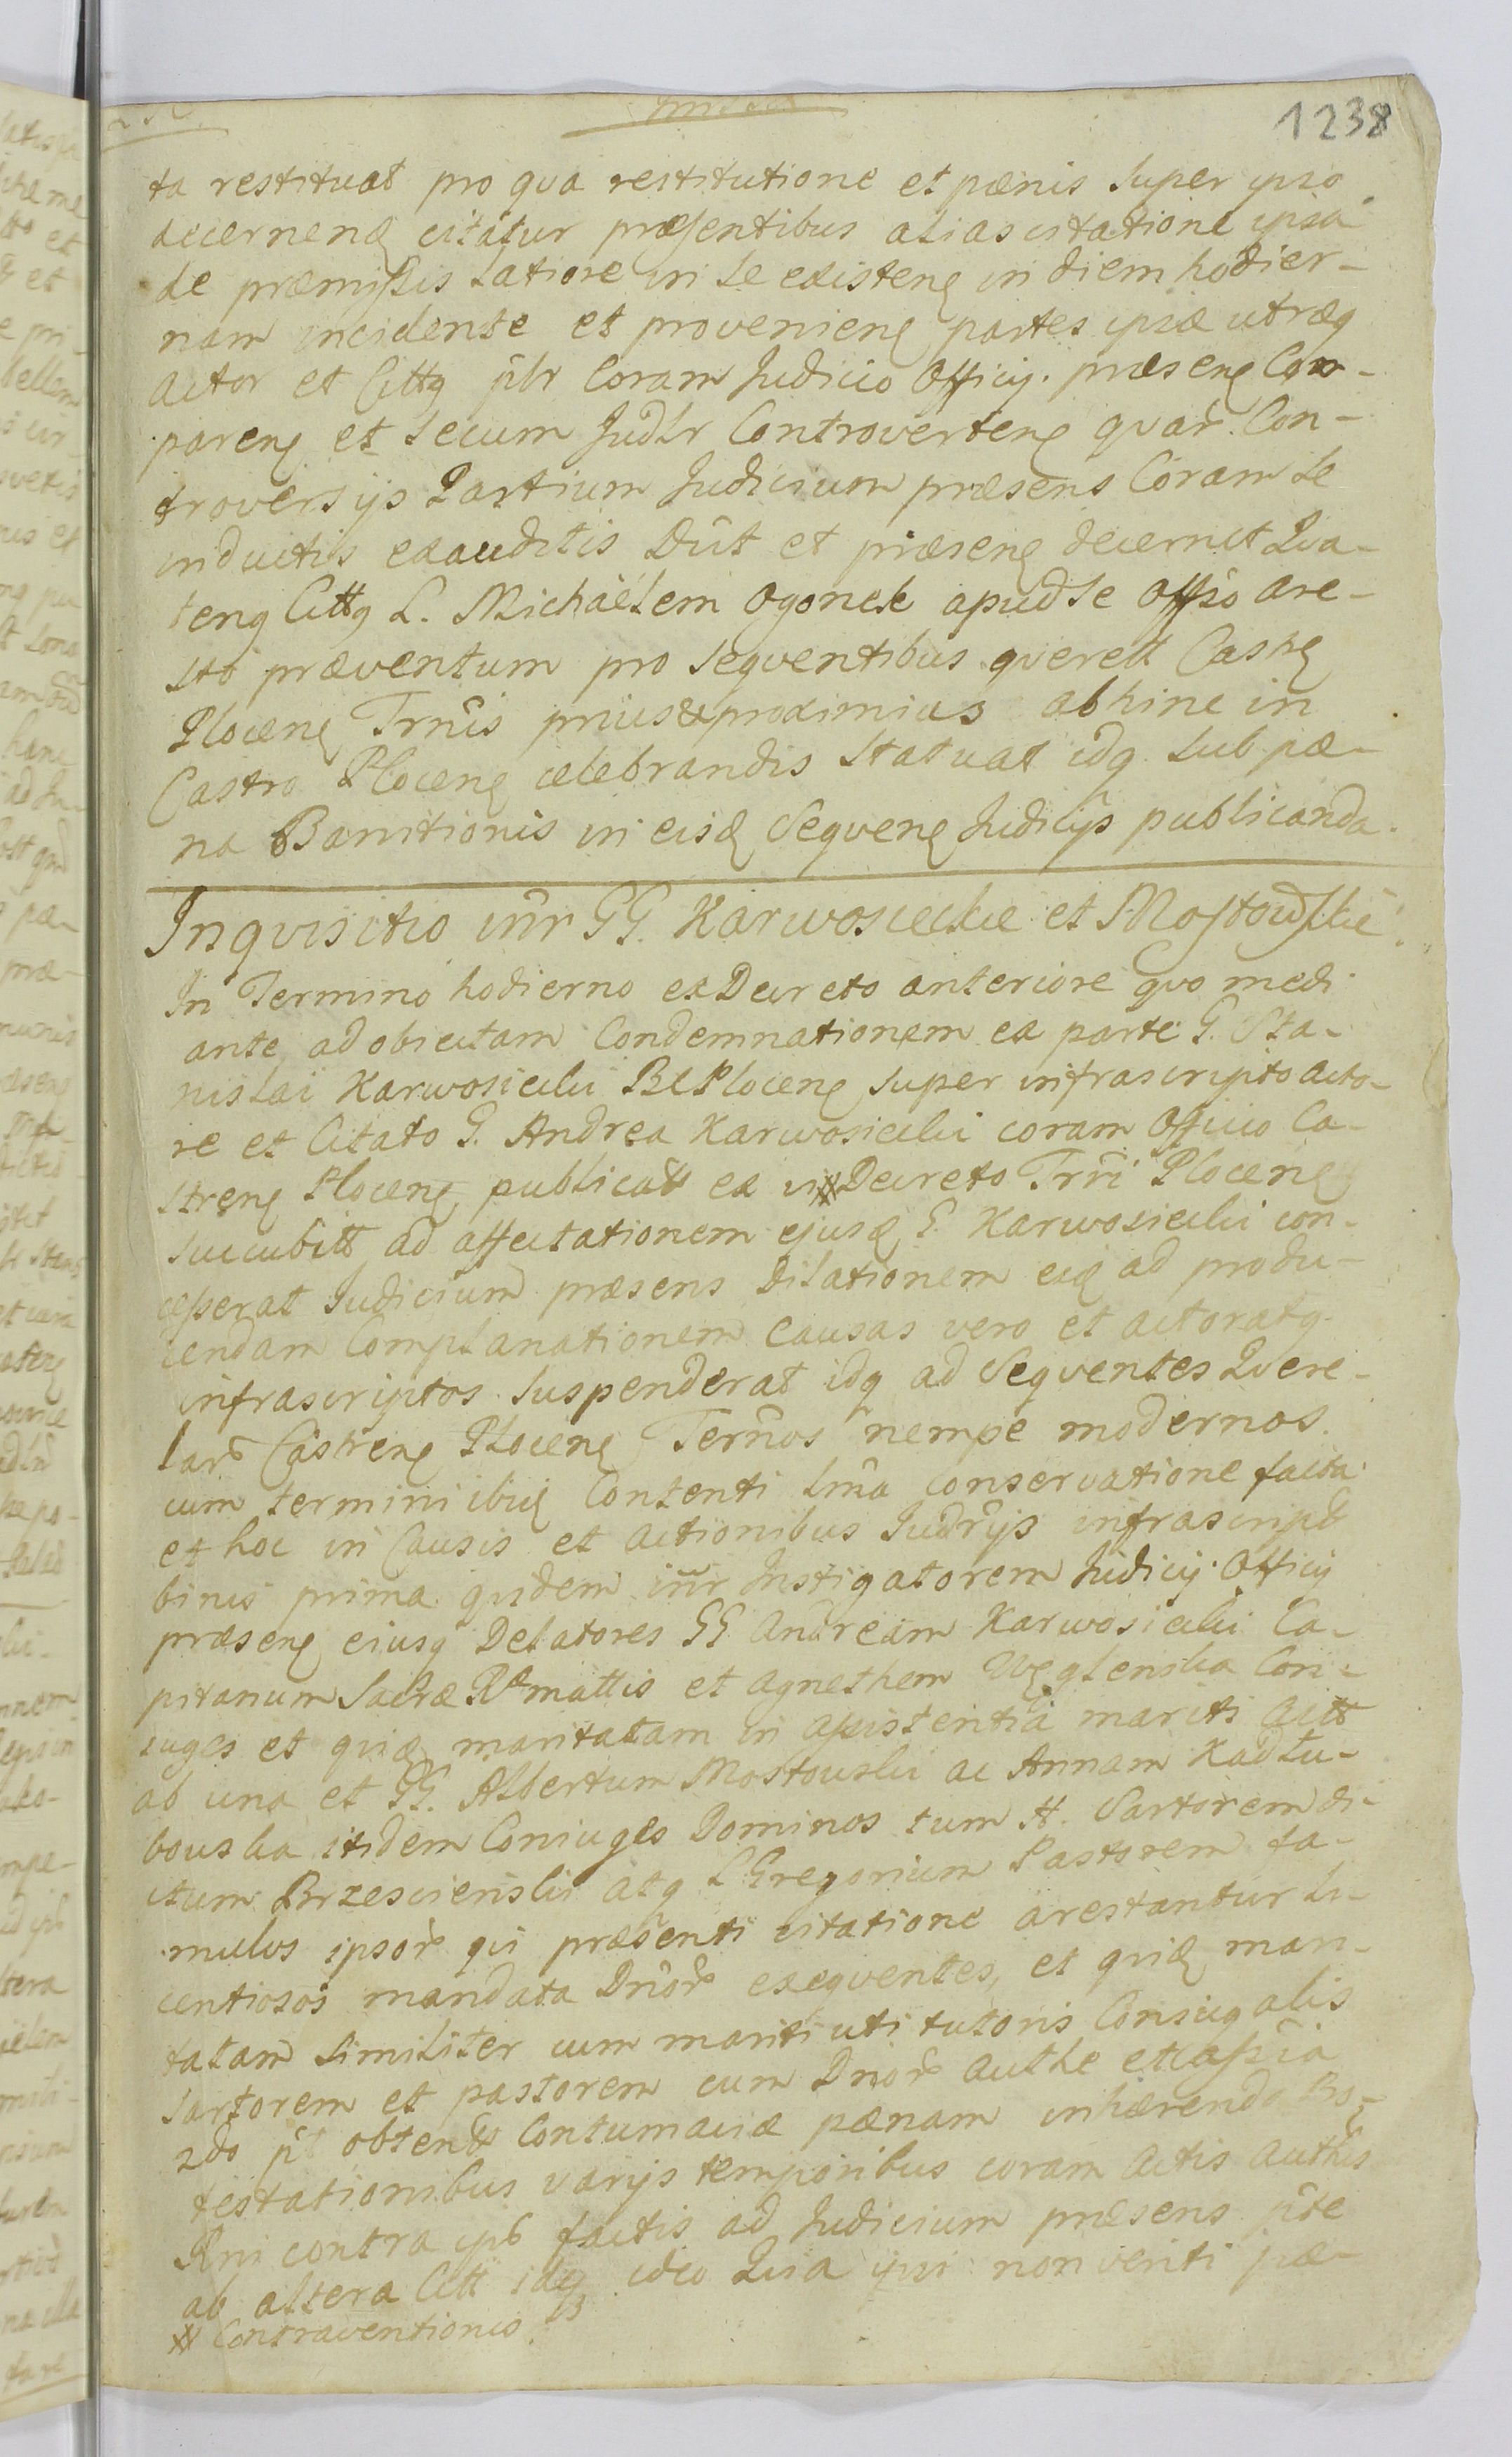 1238
ta restituat pro qva restitutione et pænis super ipso
decernenḍ citatur præsentibus alias citatione ipsa
de præmissis latiore in se existenę in diem hodier-
nam incidente et provenienę partes ipsæ utræq
actor et Cittq plr coram Judicio Officij præsenę Com-
parenę et secum Judlr Controvertenę qvar̃ Con-
troversijs Partium Judicium præsens Coram se
inductis exauditis Dût et præsenę decernit Qva-
tenq Cittq L. Michäelem Ogonek apud se offso are-
sto præventum pro seqventibus qverell Castrę
Plocenę Trnis prius & proximius abhinc in
Castro Plocenę celebrandis statuat idq sub pæ-
na Bannitionis in eisḍ Seqvenę Judicijs publicanda.
Inqvisitio inr GG. Karwosieckie et Mostowskie
In Termino hodierno ex Decreto anteriore qvo medi
ante ad obiectam Condemnationem ex parte G. Sta-
nislai Karwosiecki BC Plocenę super infrascripto acto-
re et Citato G. Andrea Karwosiecki coram Officio Ca-
strenę Plocenę publicatt ex Decreto Trni Plocenę
succubitt ad affectationem ejusḍ G. Karwosiecki con-
cesserat Judicium præsens Dilationem eiḍ ad produ-
cendam Complanationem causas vero et actoratq
infrascriptos suspenderat idq ad Seqventes Qvere-
lar̃ Castrenę Plocenę Ternos nempe modernos.
cum termini ibiḍ Contenti lma conservatione facta
et hoc in Causis et actionibus Judrijs infrascript
binis prima qvidem inr Instigatorem Judicij Officij
præsenę eiusq Delatores GG Andream Karwosiecki Ca-
pitanum Sacræ Ræ mattis et Agnethem Węglenska Con-
iuges et qviḍ maritatam in assistentia mariti actt
ab una et GG. Albertum Mostowski ac Annam Kadłu-
bowska itidem Coniuges Dominos tum H. Sartorem di-
ctum Brzescienski atq L Gregorium Pastorem fa-
mulos ipsor̃ qvi præsenti citatione arestantur li-
centiosos mandata Dnor̃ exeqventes, et qviḍ mari-
tatam similiter cum mariti uti tutoris Coniugalis
Sartorem et pastorem cum Dnor̃ authe et assia
2do pt obtentt Contumaciæ pænam inhærendo Pro-
testationibus varijs temporibus coram Actis authcis
Rni contra ips factis ad Judicium præsens pte
ab altera Citt idq ideo Qvia ipsi non veriti pæ-
# Contraventionis